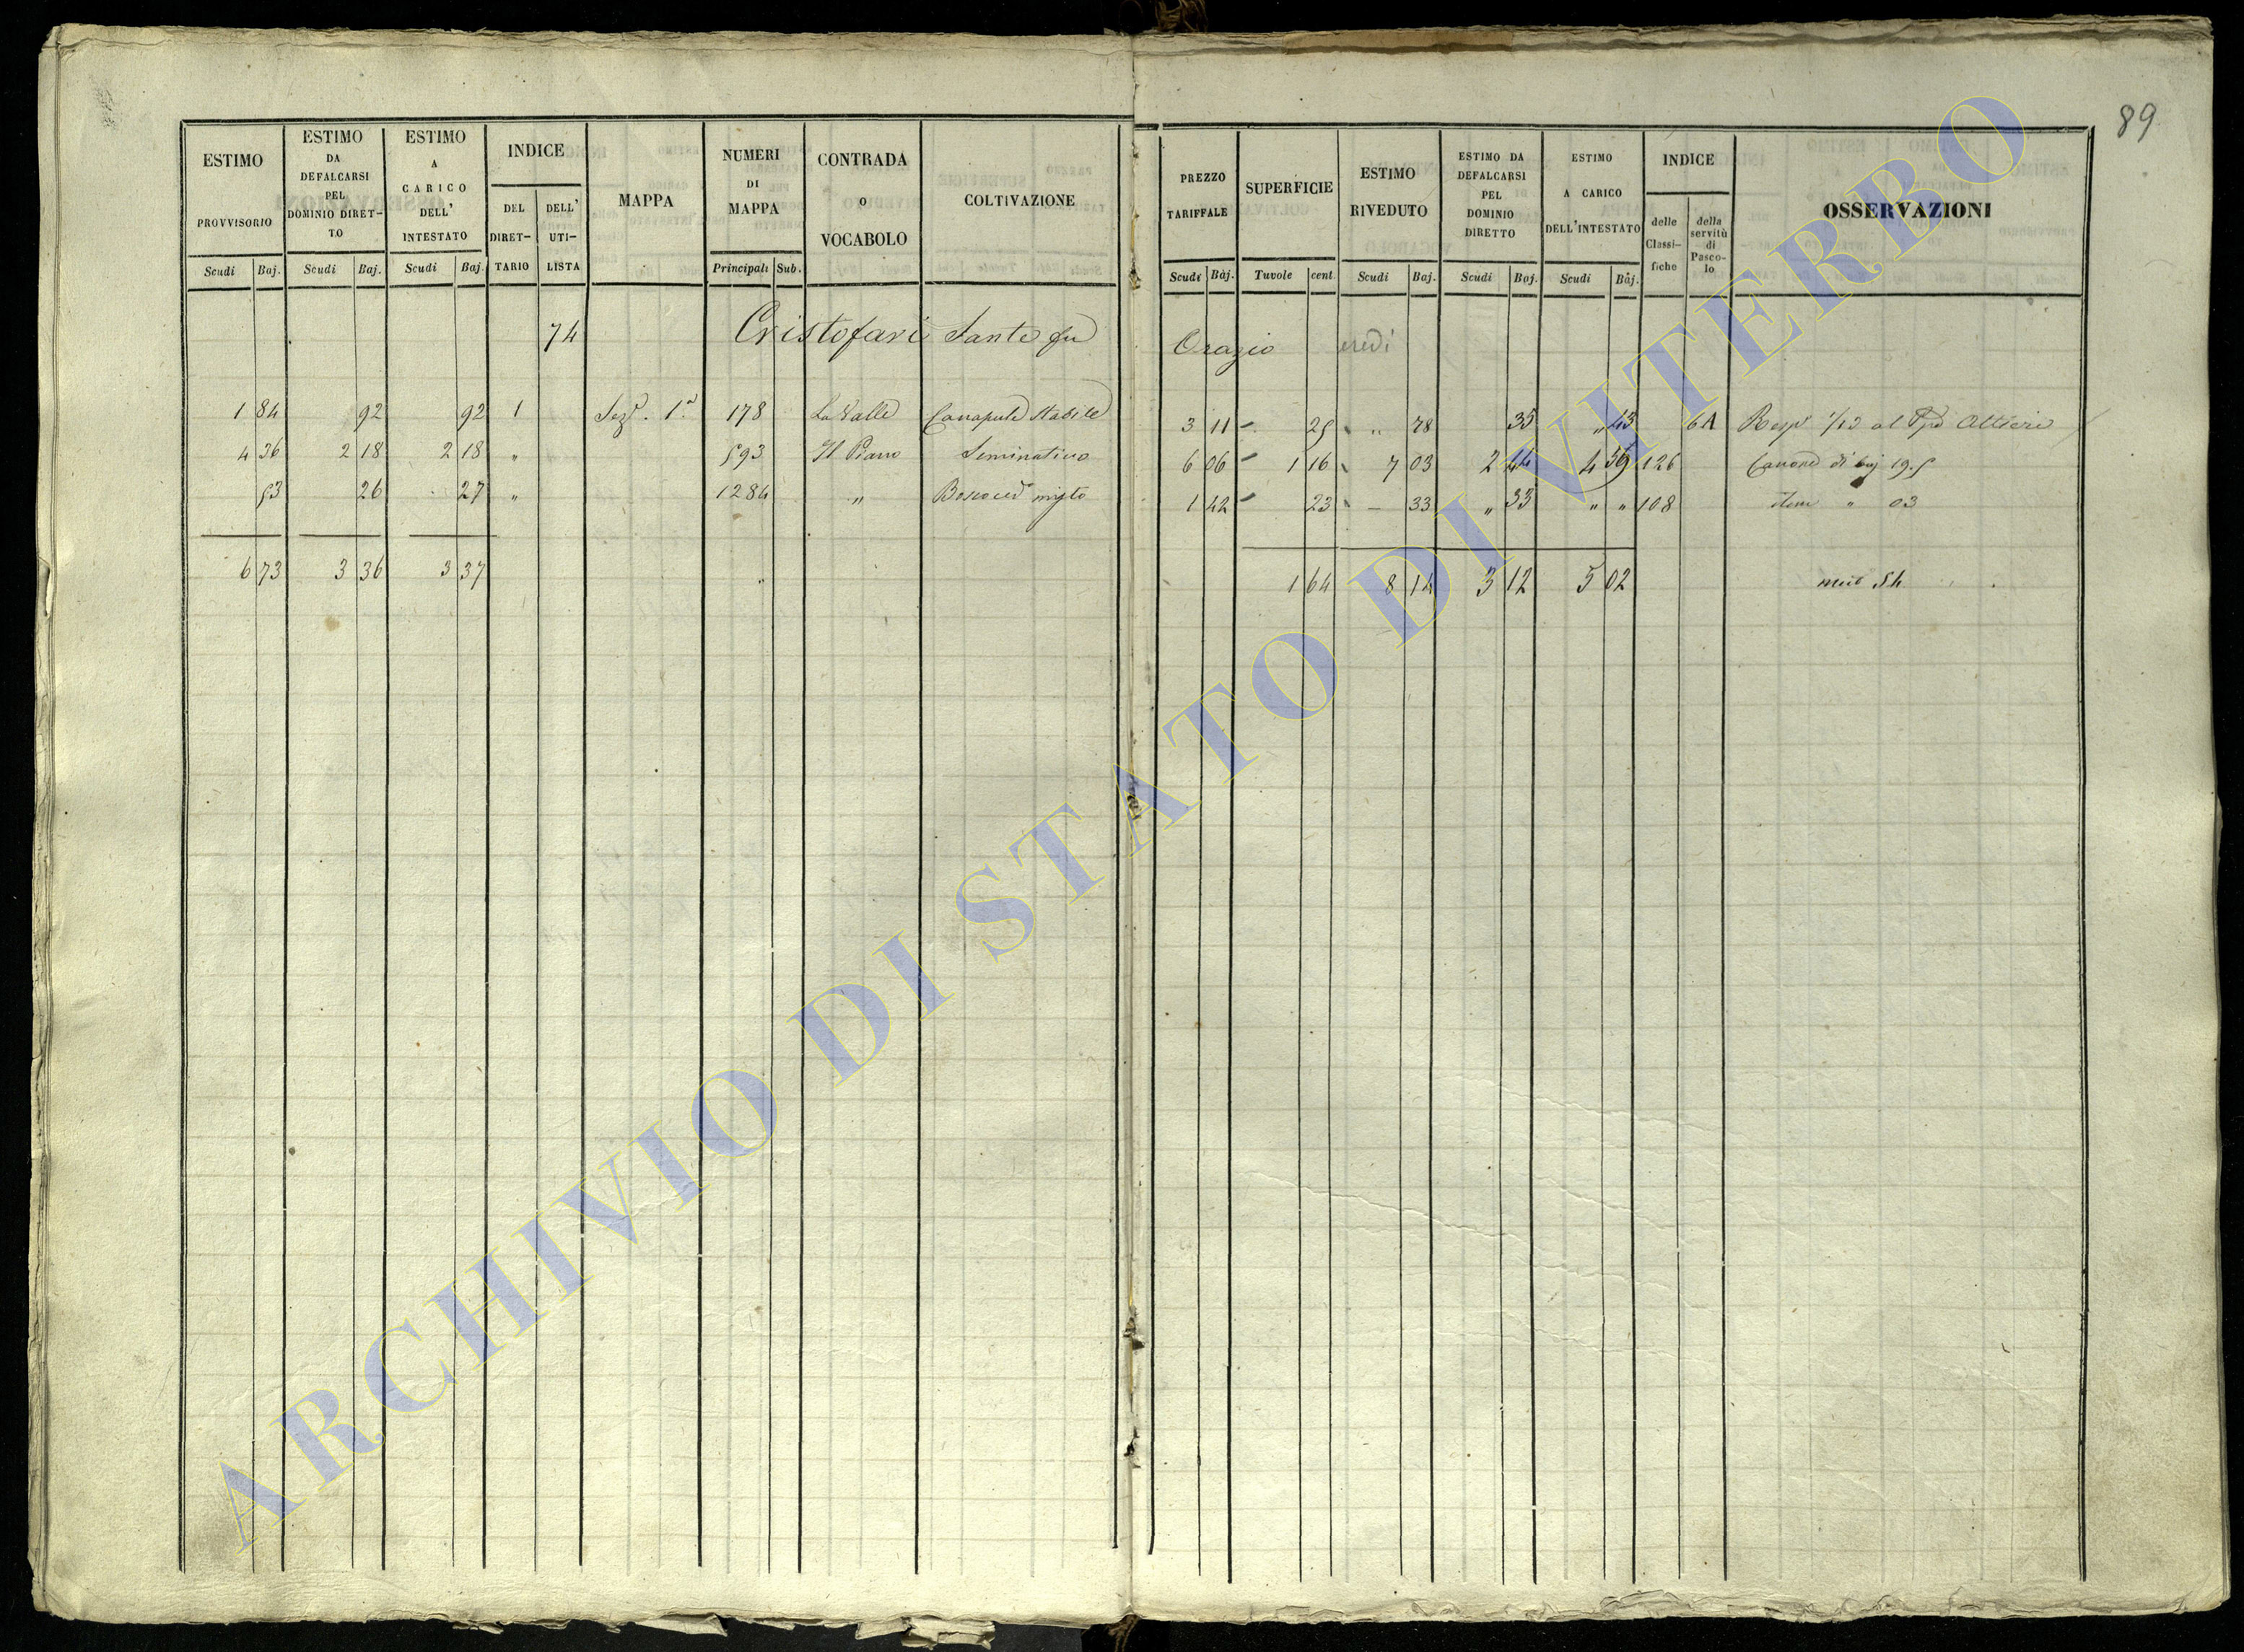 89
ESTIMO PROVVISORIO | ESTIMO DA DEFALCARSI PEL DOMINIO DIRET-TO | ESTIMO A CARICO DELL' INTESTATO | INDICE | MAPPA | NUMERI DI MAPPA | CONTRADA O VOCABOLO | COLTIVAZIONE | PREZZO TARIFFALE | SUPERFICIE | ESTIMO RIVEDUTO | ESTIMO DA DEFALCARSI PEL DOMINIO DIRETTO | ESTIMO A CARICO DELL'INTESTATO | INDICE | OSSERVAZIONI
DEL DIRET-TARIO | DELL' UTI-LISTA | delle Classi-fiche | della servitù di Pasco-lo
Scudi | Baj. | Scudi | Baj. | Scudi | Baj. | Principali | Sub. | Scudi | Baj. | Tavole | cent. | Scudi | Baj. | Scudi | Baj. | Scudi | Baj.
74 Cristofari Sante fu Orazio eredi
1 84 | 92 | 92 | 1 | Sez.e 1.a | 178 | La Valle | Canapule Stabile | 3 11 | 25 | " 78 | 35 | " 43 | 6A | Resp.e 1/12 al Altieri
4 36 | 2 18 | 2 18 | " | 593 | Il Piano | Seminativo | 6 06 | 1 16 | 7 03 | 2 44 | 4 59 | 126 | Canone di baj 19.5
53 | 26 | 27 | " | 1284 | " | Bosco ced.o misto | 1 42 | 23 | – 33 | " 33 | " " | 108 | Idem " 03
6 73 | 3 36 | 3 37 | 1 64 | 8 14 | 3 12 | 5 02
ARCHIVIO DI STATO DI VITERBO